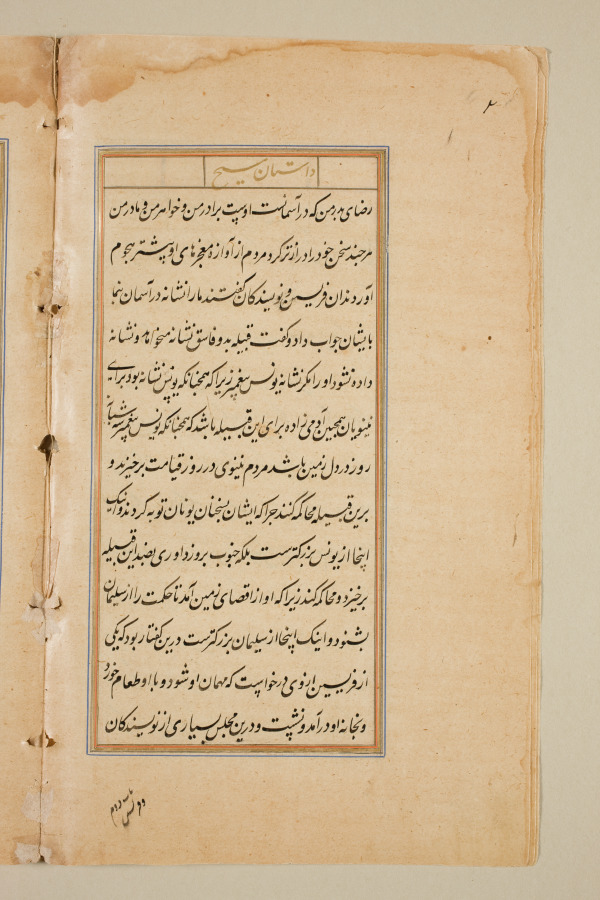 ۲
داستان مسیح
رضای پدر من که در آسمانست اوست برادر من و خواهر من و مادر من
هرچند سخن خود را دراز تر کرد مردم از آوازهٔ معجزهای او بیشتر هجوم
آوردند ان فریسین و نویسندکان کفتند ما را نشانه در آسمان بنما
بایشان جواب داد و کفت قبیله بد و فاسق نشانه میخواهد و نشانه
داده نشود او را مکر نشانه یونس پیغمبر زیرا که همچنانکه یونس نشانه بود برای
نینویان همچنین آدمی زاده برای این قبیله باشد که همچنانکه یونس پیغمبر سه شبا
روز در دل زمین باشد مردم نینوی در روز قیامت برخیزند و
برین قبیله محاکمه کنند چرا که ایشان بسخنان یونان توبه کردند و اینک
اینجا از یونس بزرکترست بلکه جنوب بروز داوری بضد این قبیله
برخیزد و محاکمه کند زیرا که او از اقصای زمین آمد تا حکمت را از سلیمان
بشنود و اینک اینجا از سلیمان بزرکترست درین کفتار بود که یکی
از فریسین از وی درخواست که مهمان او شود و با او طعام خورد
و بخانه او درآمد و نشست و درین مجلس بسیاری از نویسندکان